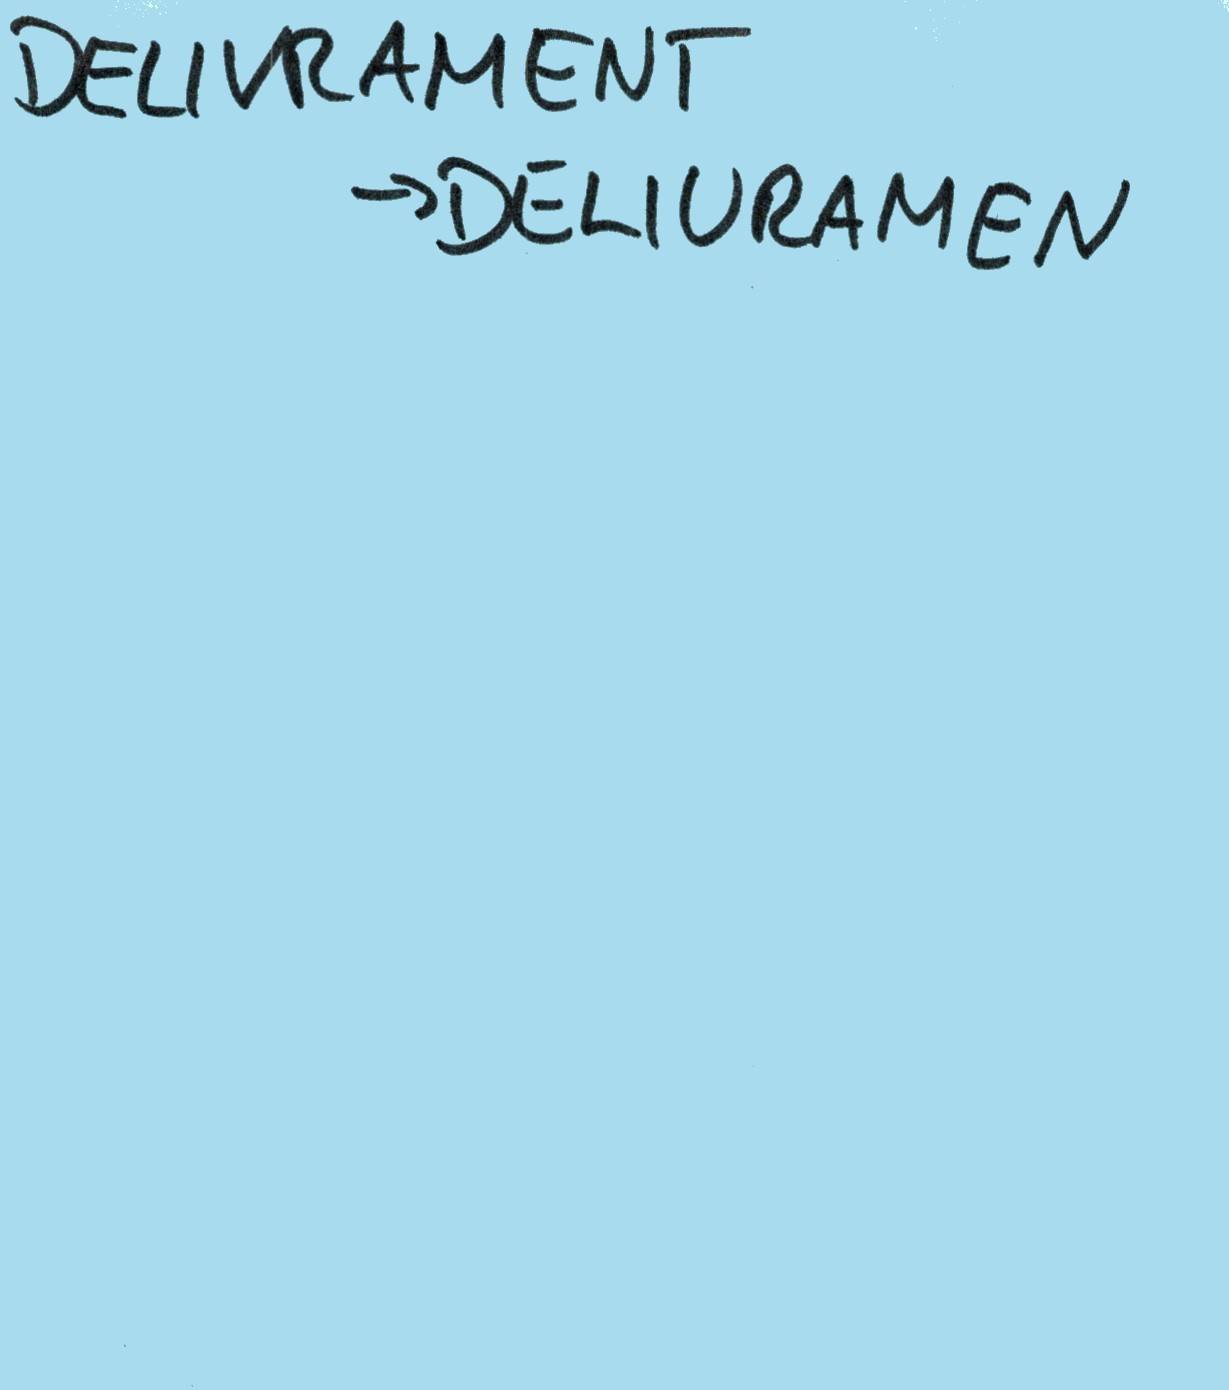 DELIVRAMENT
→DELIURAMEN